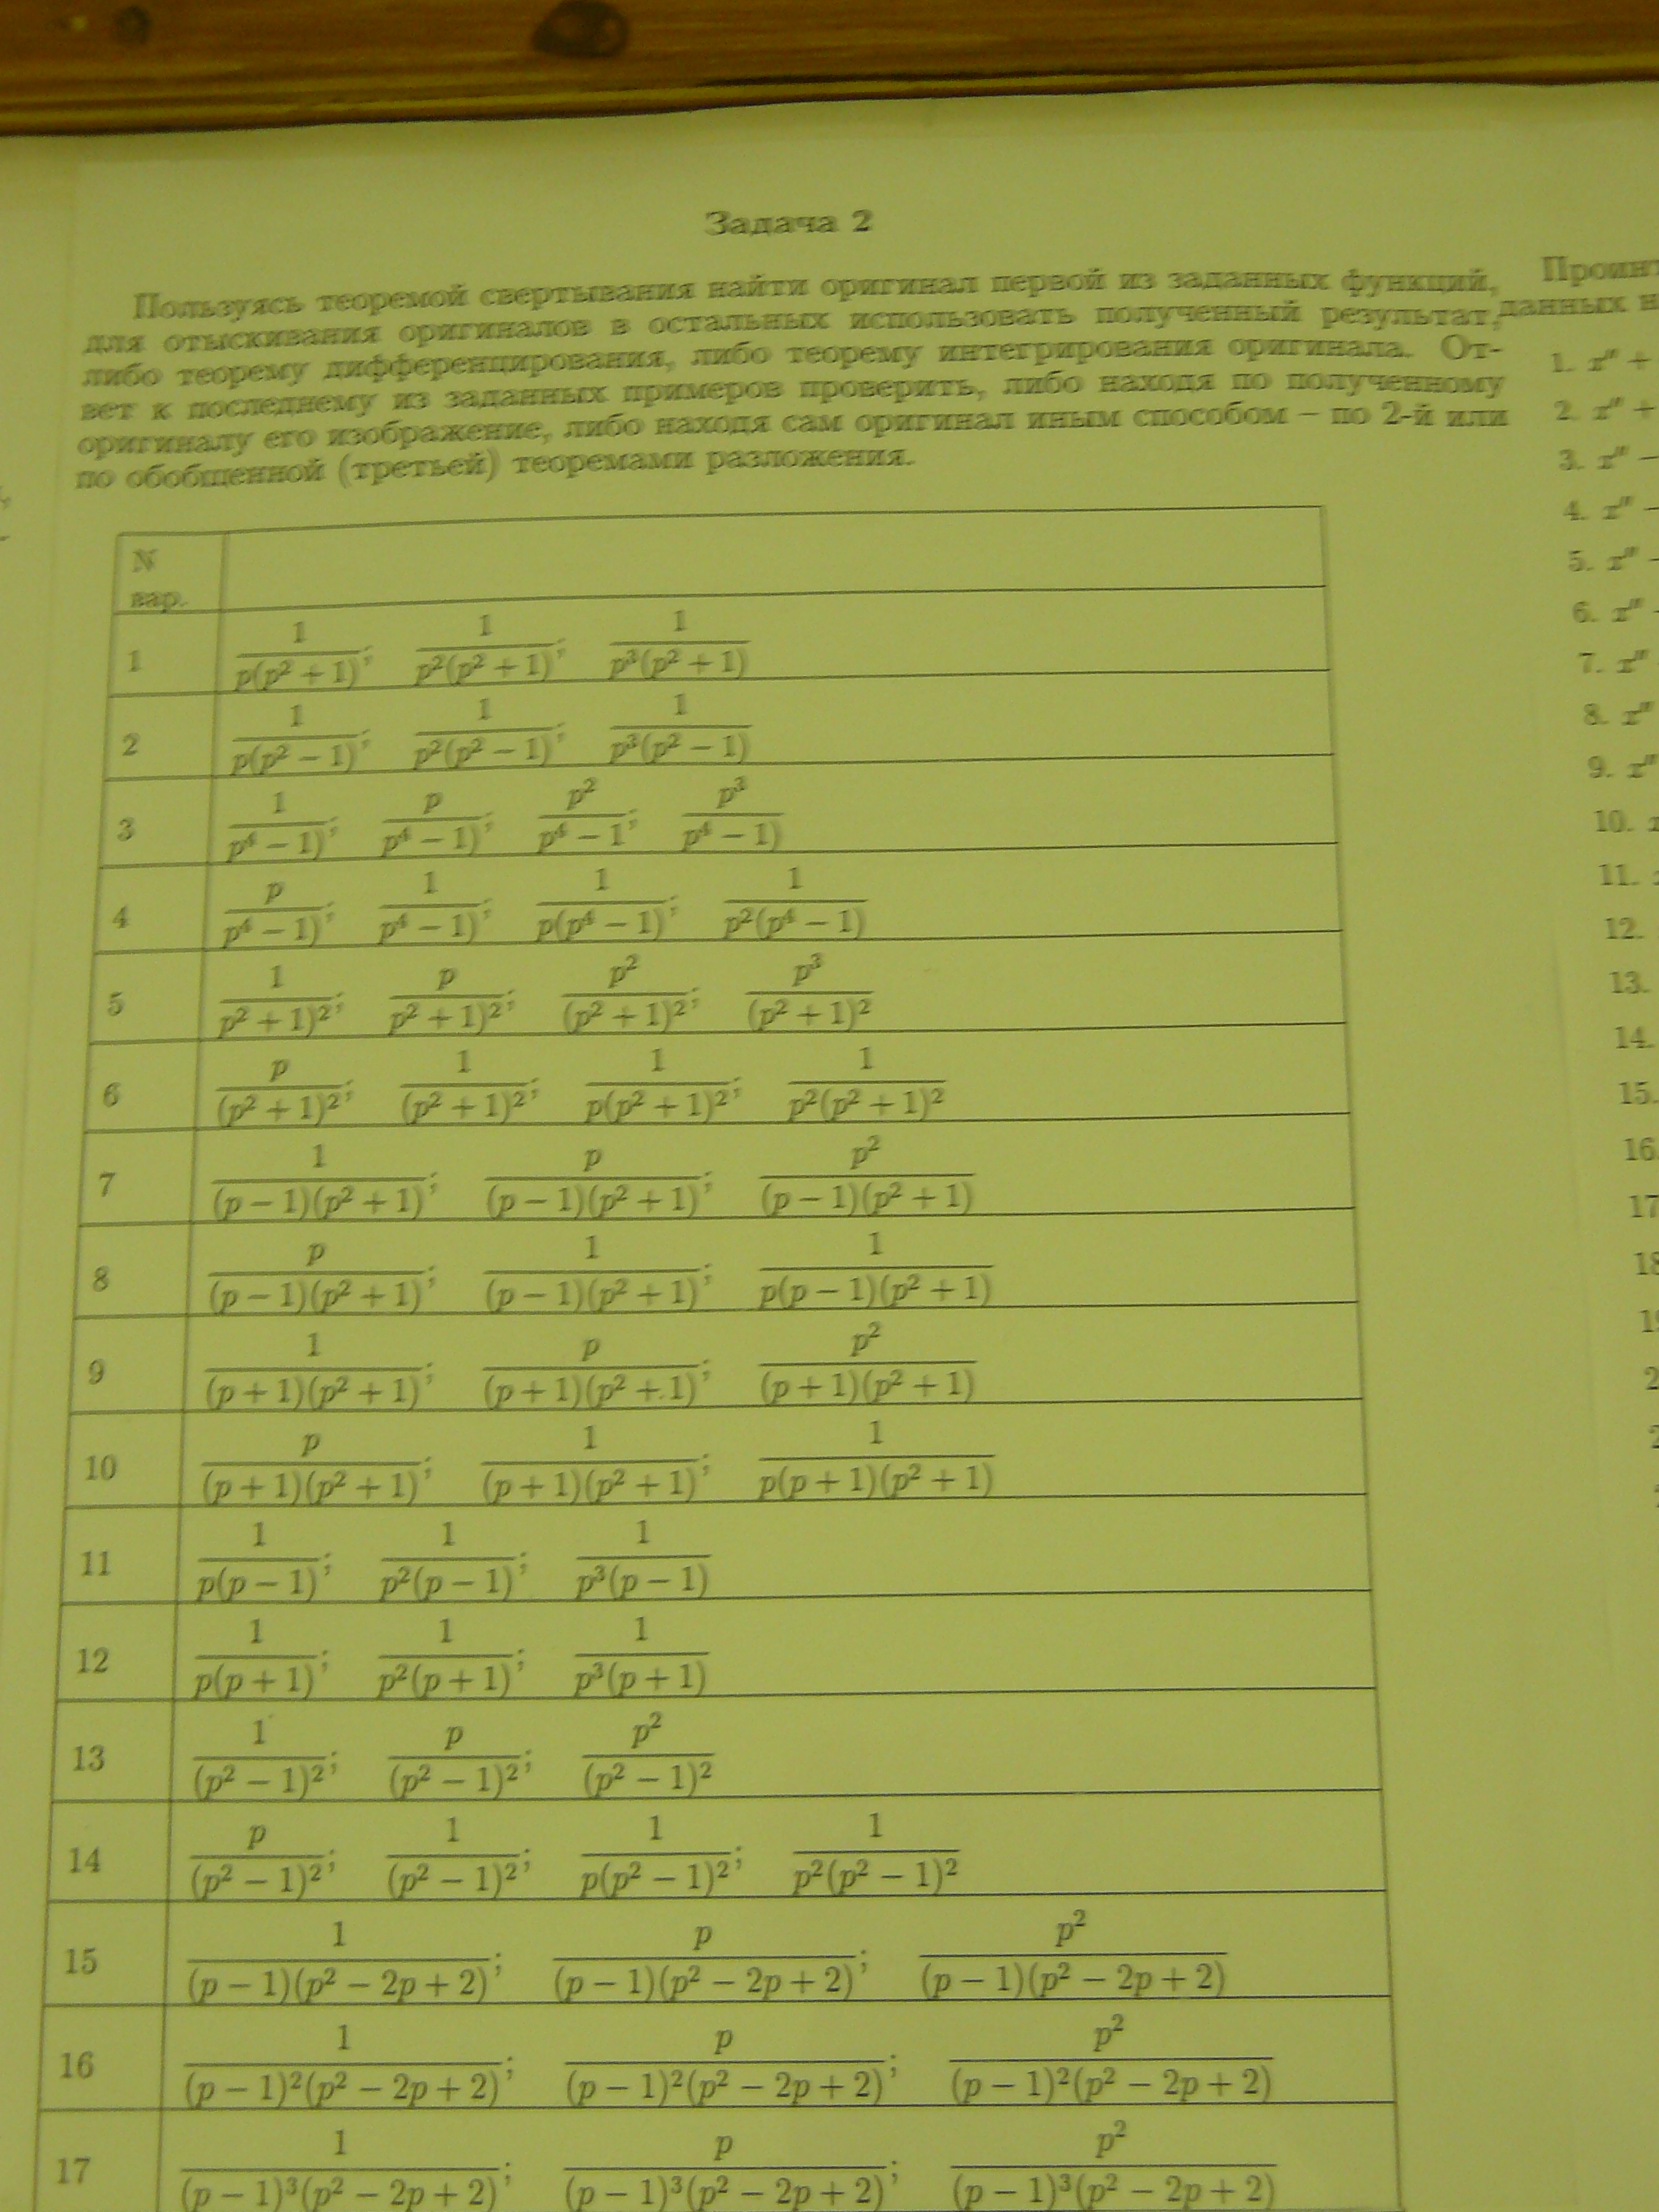 Задача 2
Пользуясь теоремой свертывания найти оригинал первой из заданных функций,
для отыскивания оригиналов в остальных использовать полученный результат,
либо теорему дифференцирования, либо теорему интегрирования оригинала. От-
вет к последнему из заданных примеров проверить, либо находя по полученному
оригиналу его изображение, либо находя сам оригинал иным способом – по 2-й или
по обобщенной (третьей) теоремами разложения.
N
вар.
1 1/(p(p²+1)); 1/(p²(p²+1)); 1/(p³(p²+1))
2 1/(p(p²−1)); 1/(p²(p²−1)); 1/(p³(p²−1))
3 1/(p⁴−1)); p/(p⁴−1)); p²/(p⁴−1); p³/(p⁴−1))
4 p/(p⁴−1)); 1/(p⁴−1)); 1/(p(p⁴−1)); 1/(p²(p⁴−1))
5 1/(p²+1)²; p/(p²+1)²; p²/(p²+1)²; p³/(p²+1)²
6 p/(p²+1)²; 1/(p²+1)²; 1/(p(p²+1)²); 1/(p²(p²+1)²)
7 1/((p−1)(p²+1)); p/((p−1)(p²+1)); p²/((p−1)(p²+1))
8 p/((p−1)(p²+1)); 1/((p−1)(p²+1)); 1/(p(p−1)(p²+1))
9 1/((p+1)(p²+1)); p/((p+1)(p²+1)); p²/((p+1)(p²+1))
10 p/((p+1)(p²+1)); 1/((p+1)(p²+1)); 1/(p(p+1)(p²+1))
11 1/(p(p−1)); 1/(p²(p−1)); 1/(p³(p−1))
12 1/(p(p+1)); 1/(p²(p+1)); 1/(p³(p+1))
13 1/(p²−1)²; p/(p²−1)²; p²/(p²−1)²
14 p/(p²−1)²; 1/(p²−1)²; 1/(p(p²−1)²); 1/(p²(p²−1)²)
15 1/((p−1)(p²−2p+2)); p/((p−1)(p²−2p+2)); p²/((p−1)(p²−2p+2))
16 1/((p−1)²(p²−2p+2)); p/((p−1)²(p²−2p+2)); p²/((p−1)²(p²−2p+2))
17 1/((p−1)³(p²−2p+2)); p/((p−1)³(p²−2p+2)); p²/((p−1)³(p²−2p+2))
данных
1. x″ +
2. x″ +
3. x″ −
4. x″ −
5. x″ −
6. x″
7. x″
8. x″
9. x″
10.
11.
12.
13.
14.
15.
16.
17
18